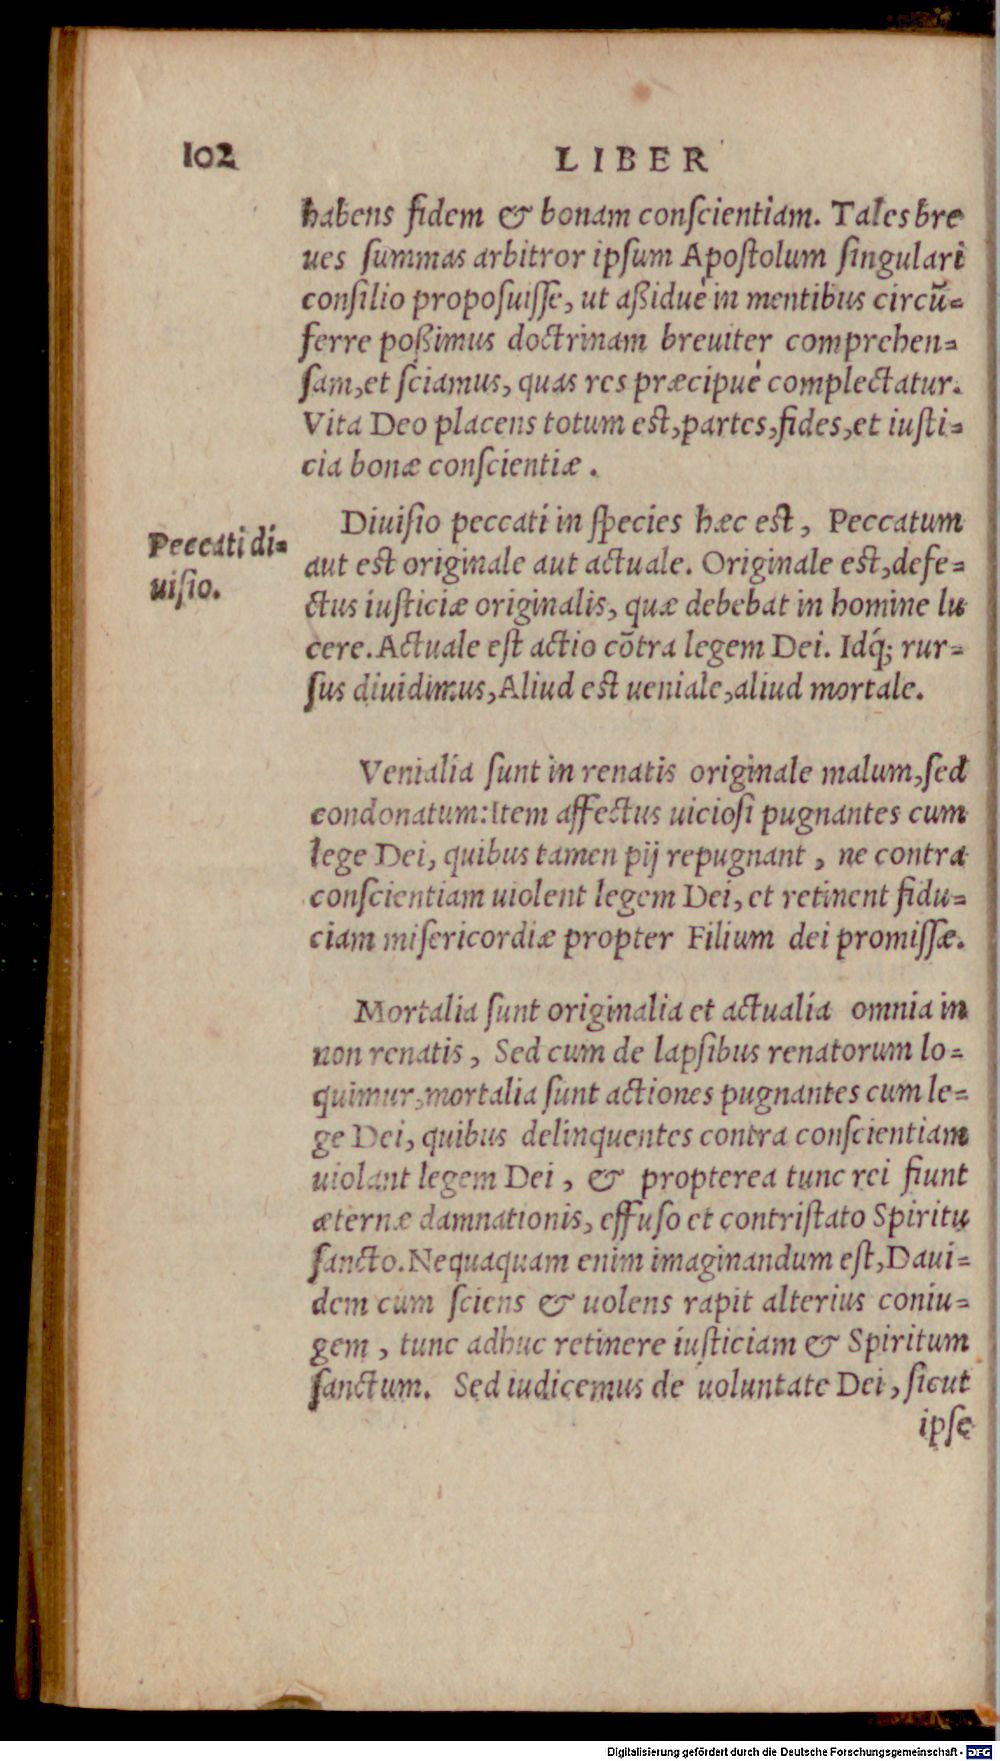 102
LIBER
habens fidem & bonam conſcientiam. Tales bre
ues ſummas arbitror ipſum Apoſtolum ſingulari
conſilio propoſuiſſe, ut aßiduè in mentibus circũ=
ferre poßimus doctrinam breuiter comprehen=
ſam, et ſciamus, quas res præcipuè complectatur.
Vita Deo placens totum est, partes, fides, et iuſti=
cia bonæ conſcientiæ.
Peccati di=
uiſio.
Diuiſio peccati in ſpecies hæc est, Peccatum
aut est originale aut actuale. Originale est, defe=
ctus iuſticiæ originalis, quæ debebat in homine lu
cere. Actuale eſt actio cõtra legem Dei. Idq́; rur=
ſus diuidimus, Aliud est ueniale, aliud mortale.
Venialia ſunt in renatis originale malum, ſed
condonatum: Item affectus uicioſi pugnantes cum
lege Dei, quibus tamen pij repugnant, ne contra
conſcientiam uiolent legem Dei, et retinent fidu=
ciam miſericordiæ propter Filium dei promiſſæ.
Mortalia ſunt originalia et actualia omnia in
non renatis, Sed cum de lapſibus renatorum lo=
quimur, mortalia ſunt actiones pugnantes cum le=
ge Dei, quibus delinquentes contra conſcientiam
uiolant legem Dei, & propterea tunc rei fiunt
æternæ damnationis, effuſo et contriſtato Spiritu
ſancto. Nequaquam enim imaginandum eſt, Daui=
dem cum ſciens & uolens rapit alterius coniu=
gem, tunc adhuc retinere iuſticiam & Spiritum
ſanctum. Sed iudicemus de uoluntate Dei, ſicut
ipſe
Digitalisierung gefördert durch die Deutsche Forschungsgemeinschaft - DFG